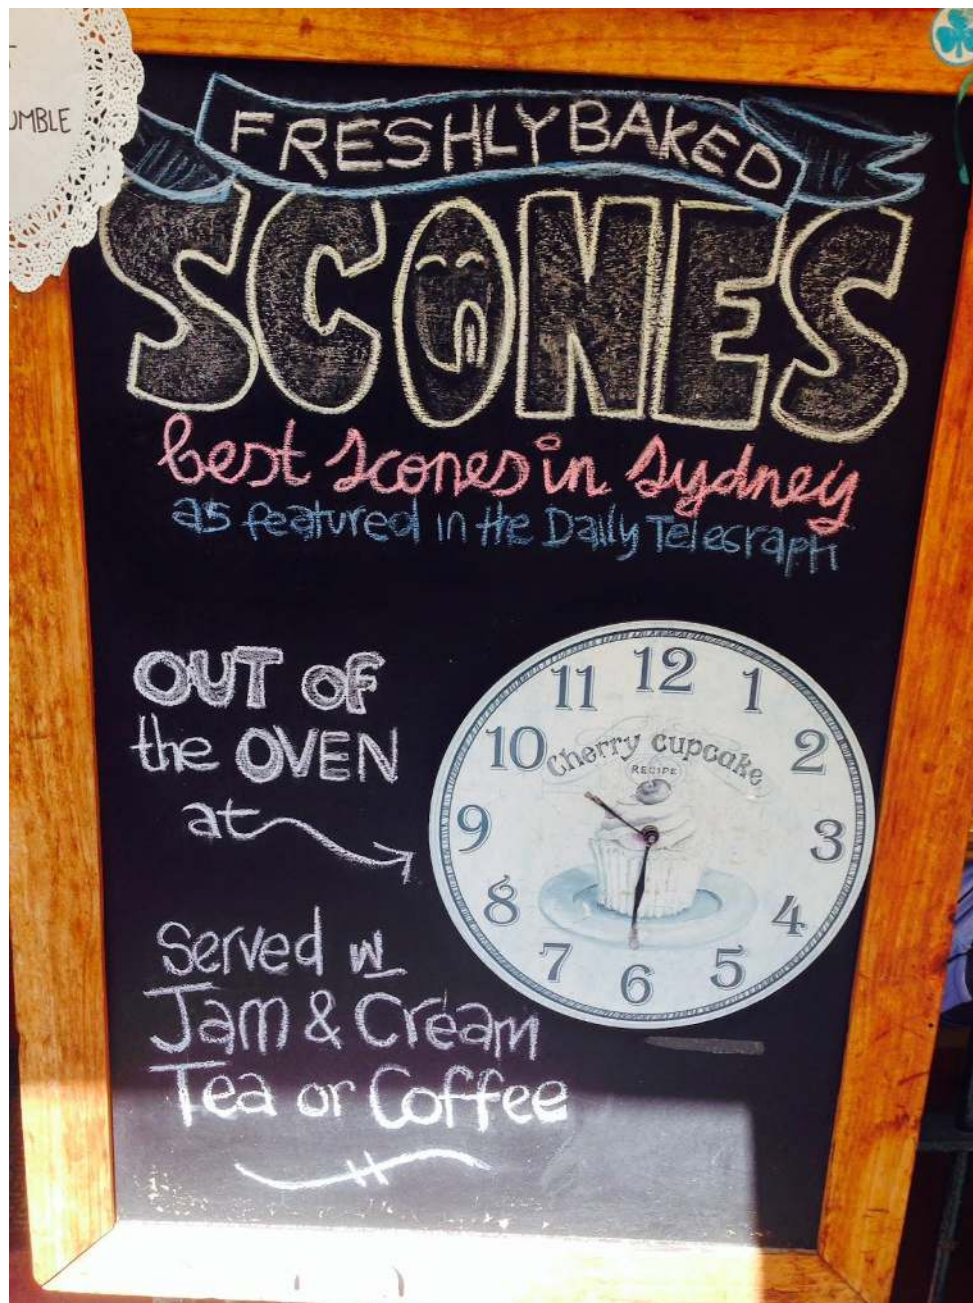 UMBLE
FRESHLY BAKED
SCONES
best scones in Sydney
as featured in the Daily Telegraph
OUT OF
the OVEN
at
11 12 1
10 2
Cherry cupcake
RECIPE
9 3
8 4
7 6 5
Served w
Jam & Cream
Tea or Coffee